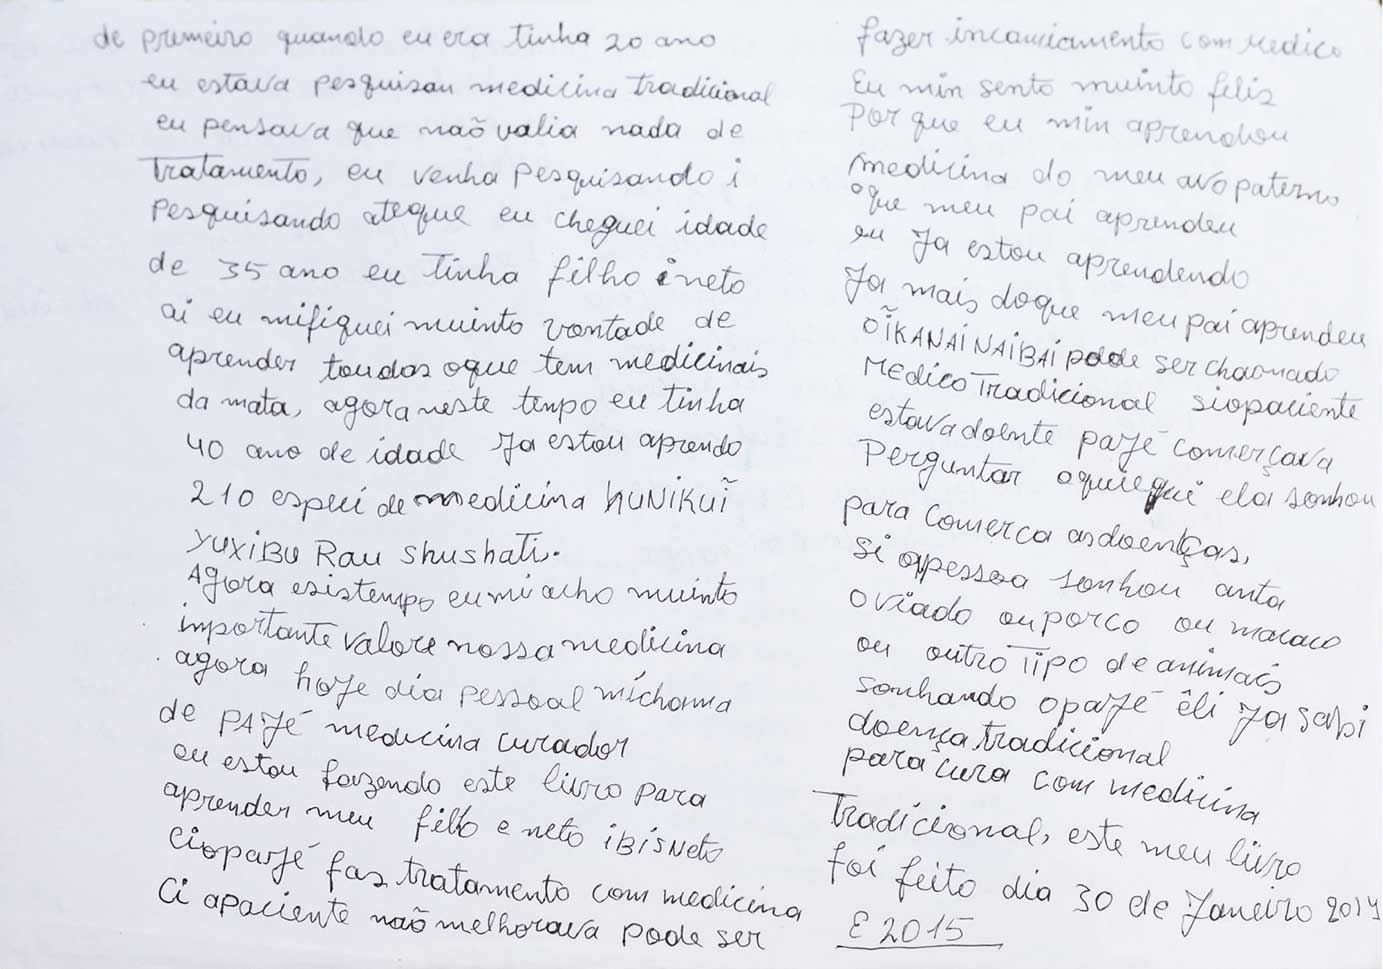 de premeiro quando eu era tinha 20 ano
eu estava pesquisan medicina tradicional
eu pensava que naõ valia nada de
tratamento, eu venha pesquisando i
pesquisando ateque eu cheguei idade
de 35 ano eu tinha filho i neto
ai eu mifiquei muinto vontade de
aprender toudas oque tem medicinais
da mata, agora neste tenpo eu tinha
40 ano de idade Ja estou aprendo
210 especi de medicina hUNiKUĩ
YUXiBU RaU Shushati.
Agora esistempo eu mi acho muinto
importante valore nossa medicina
agora hoje dia pessoal michama
de PAJÉ medicina curador
eu estou fazendo este livro para
aprender meu filho e neto iBisNeto
Ciopajé faz tratamento com medicina
Ci apaciente naõ melhorava pode ser
fazer incaminamento com Medico
Eu min sento muinto feliz
Por que eu min aprendeu
medicina do meu avo paterno
oque meu pai aprendeu
eu Ja estou aprendendo
Ja mais doque meu pai aprendeu
ÕĨKANAiNAiBAi pode ser chamado
Medico Tradicional siopaciente
estava doente pajé comerçava
Perguntar oquieque ela sonhou
para comerca as doenças,
si apessoa sonhou anta
o viado ou porco ou macaco
ou outro Tipo de animais
sonhando o pajé êli ja sabi
doença tradicional
para cura com medicina
Tradicional, este meu livro
foi feito dia 30 de Janeiro 2014
E 2015